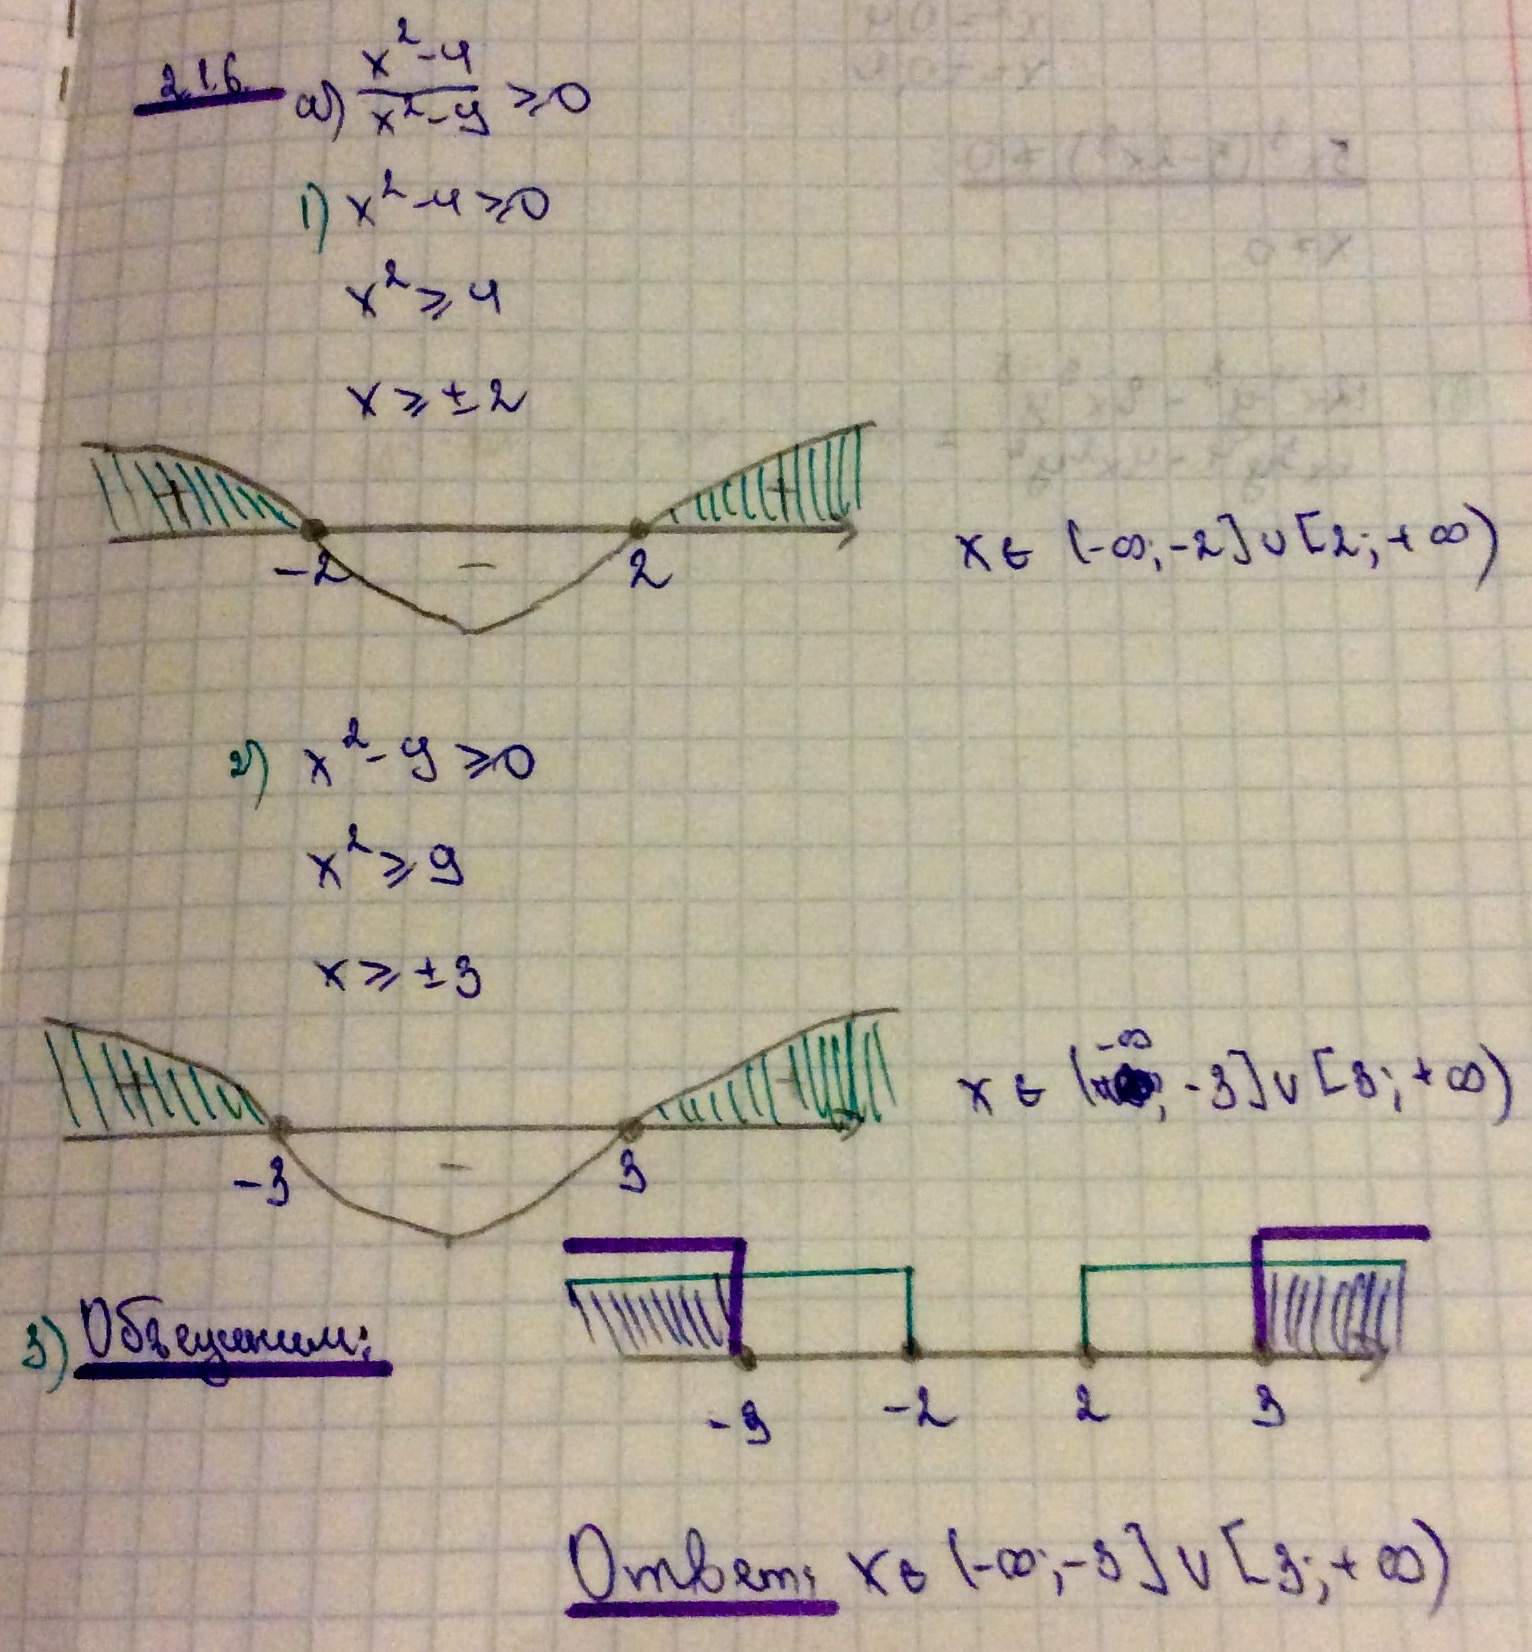 2.1.6. а) (x² - 4)/(x² - 9) ⩾ 0
1) x² - 4 ⩾ 0
x² ⩾ 4
x ⩾ ± 2
+ - +
-2 2
x ∈ (-∞; -2] ∪ [2; +∞)
2) x² - 9 ⩾ 0
x² ⩾ 9
x ⩾ ± 3
+ - +
-3 3
x ∈ (-∞; -3] ∪ [3; +∞)
3) Объединим:
-3 -2 2 3
Ответ: x ∈ (-∞; -3] ∪ [3; +∞)